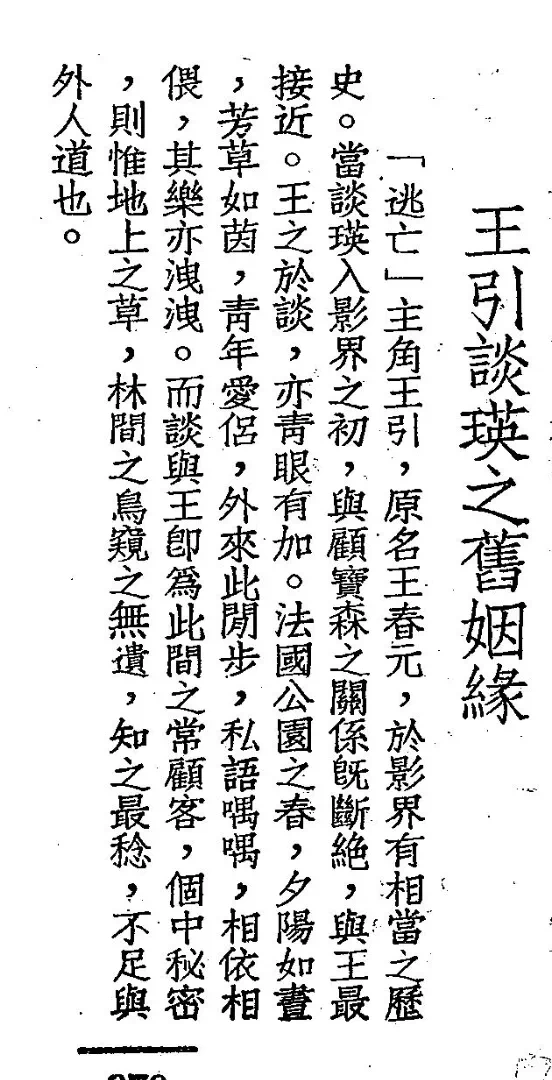 王引談瑛之舊姻緣
「逃亡」主角王引，原名王春元，於影界有相當之歷
史。當談瑛入影界之初，與顧寶森之關係旣斷絕，與王最
接近。王之於談，亦靑眼有加。法國公園之春，夕陽如晝
，芳草如茵，靑年愛侶，外來此閒步，私語喁喁，相依相
偎，其樂亦洩洩。而談與王卽爲此間之常顧客，個中秘密
，則惟地上之草，林間之鳥窺之無遺，知之最稔，不足與
外人道也。